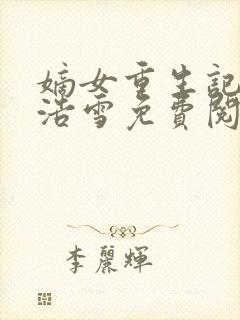 嫡女重生記
浩雪免費閱
李麗輝